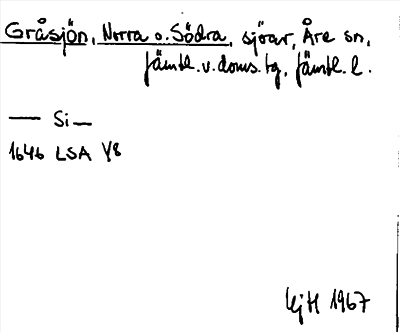 Gråsjön, Norra o. Södra, sjöar, Åre sn,
Jämtl. v. doms. tg, Jämtl. l.
— Si —
1646 LSA Y8
1967